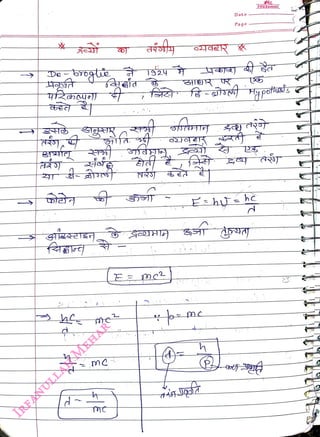 Date
Page
* द्रव्यों का तरंगीय व्यवहार *
→ De-broglie ने 1924 में प्रकाश की द्वैत
प्रकृति सिद्धांत के आधार पर एक
परिकल्पना दी, जिसे डि-ब्रोग्ली Hypothesis
कहते हैं।
→ इसके अनुसार सभी गतिमान द्रव्य तरंगे
तरंग की भाँति भी व्यवहार करती है
अर्थात् सभी गतिमान द्रव्यों से एक
तरंग संबंद्ध होती है जिसे द्रव्य तरंग
या डी-ब्रोग्ली तरंग कहते हैं।
→ फोटोन की ऊर्जा - E = hν = hc/λ
→ आइंस्टाइन के द्रव्यमान ऊर्जा तुल्यता
सिद्धान्त से -
E = mc²
→ hc/λ = mc²
h/λ = mc
λ = h/mc
∵ p = mc
λ = h/p → कण प्रकृति
तरंग प्रकृति
IRFANULLAH MEHAR